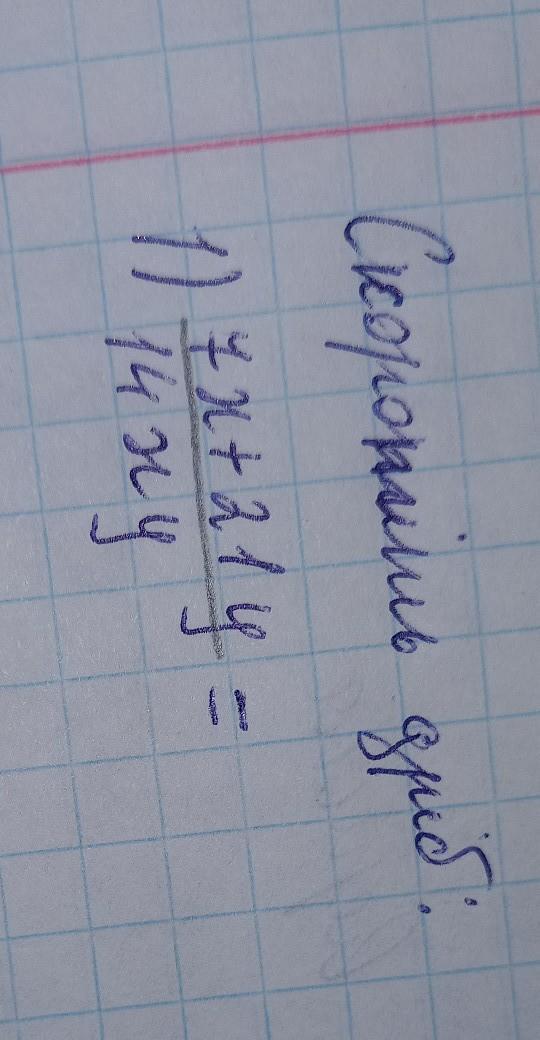 Скоротіть дріб:
1) 7x+21y =
14xy